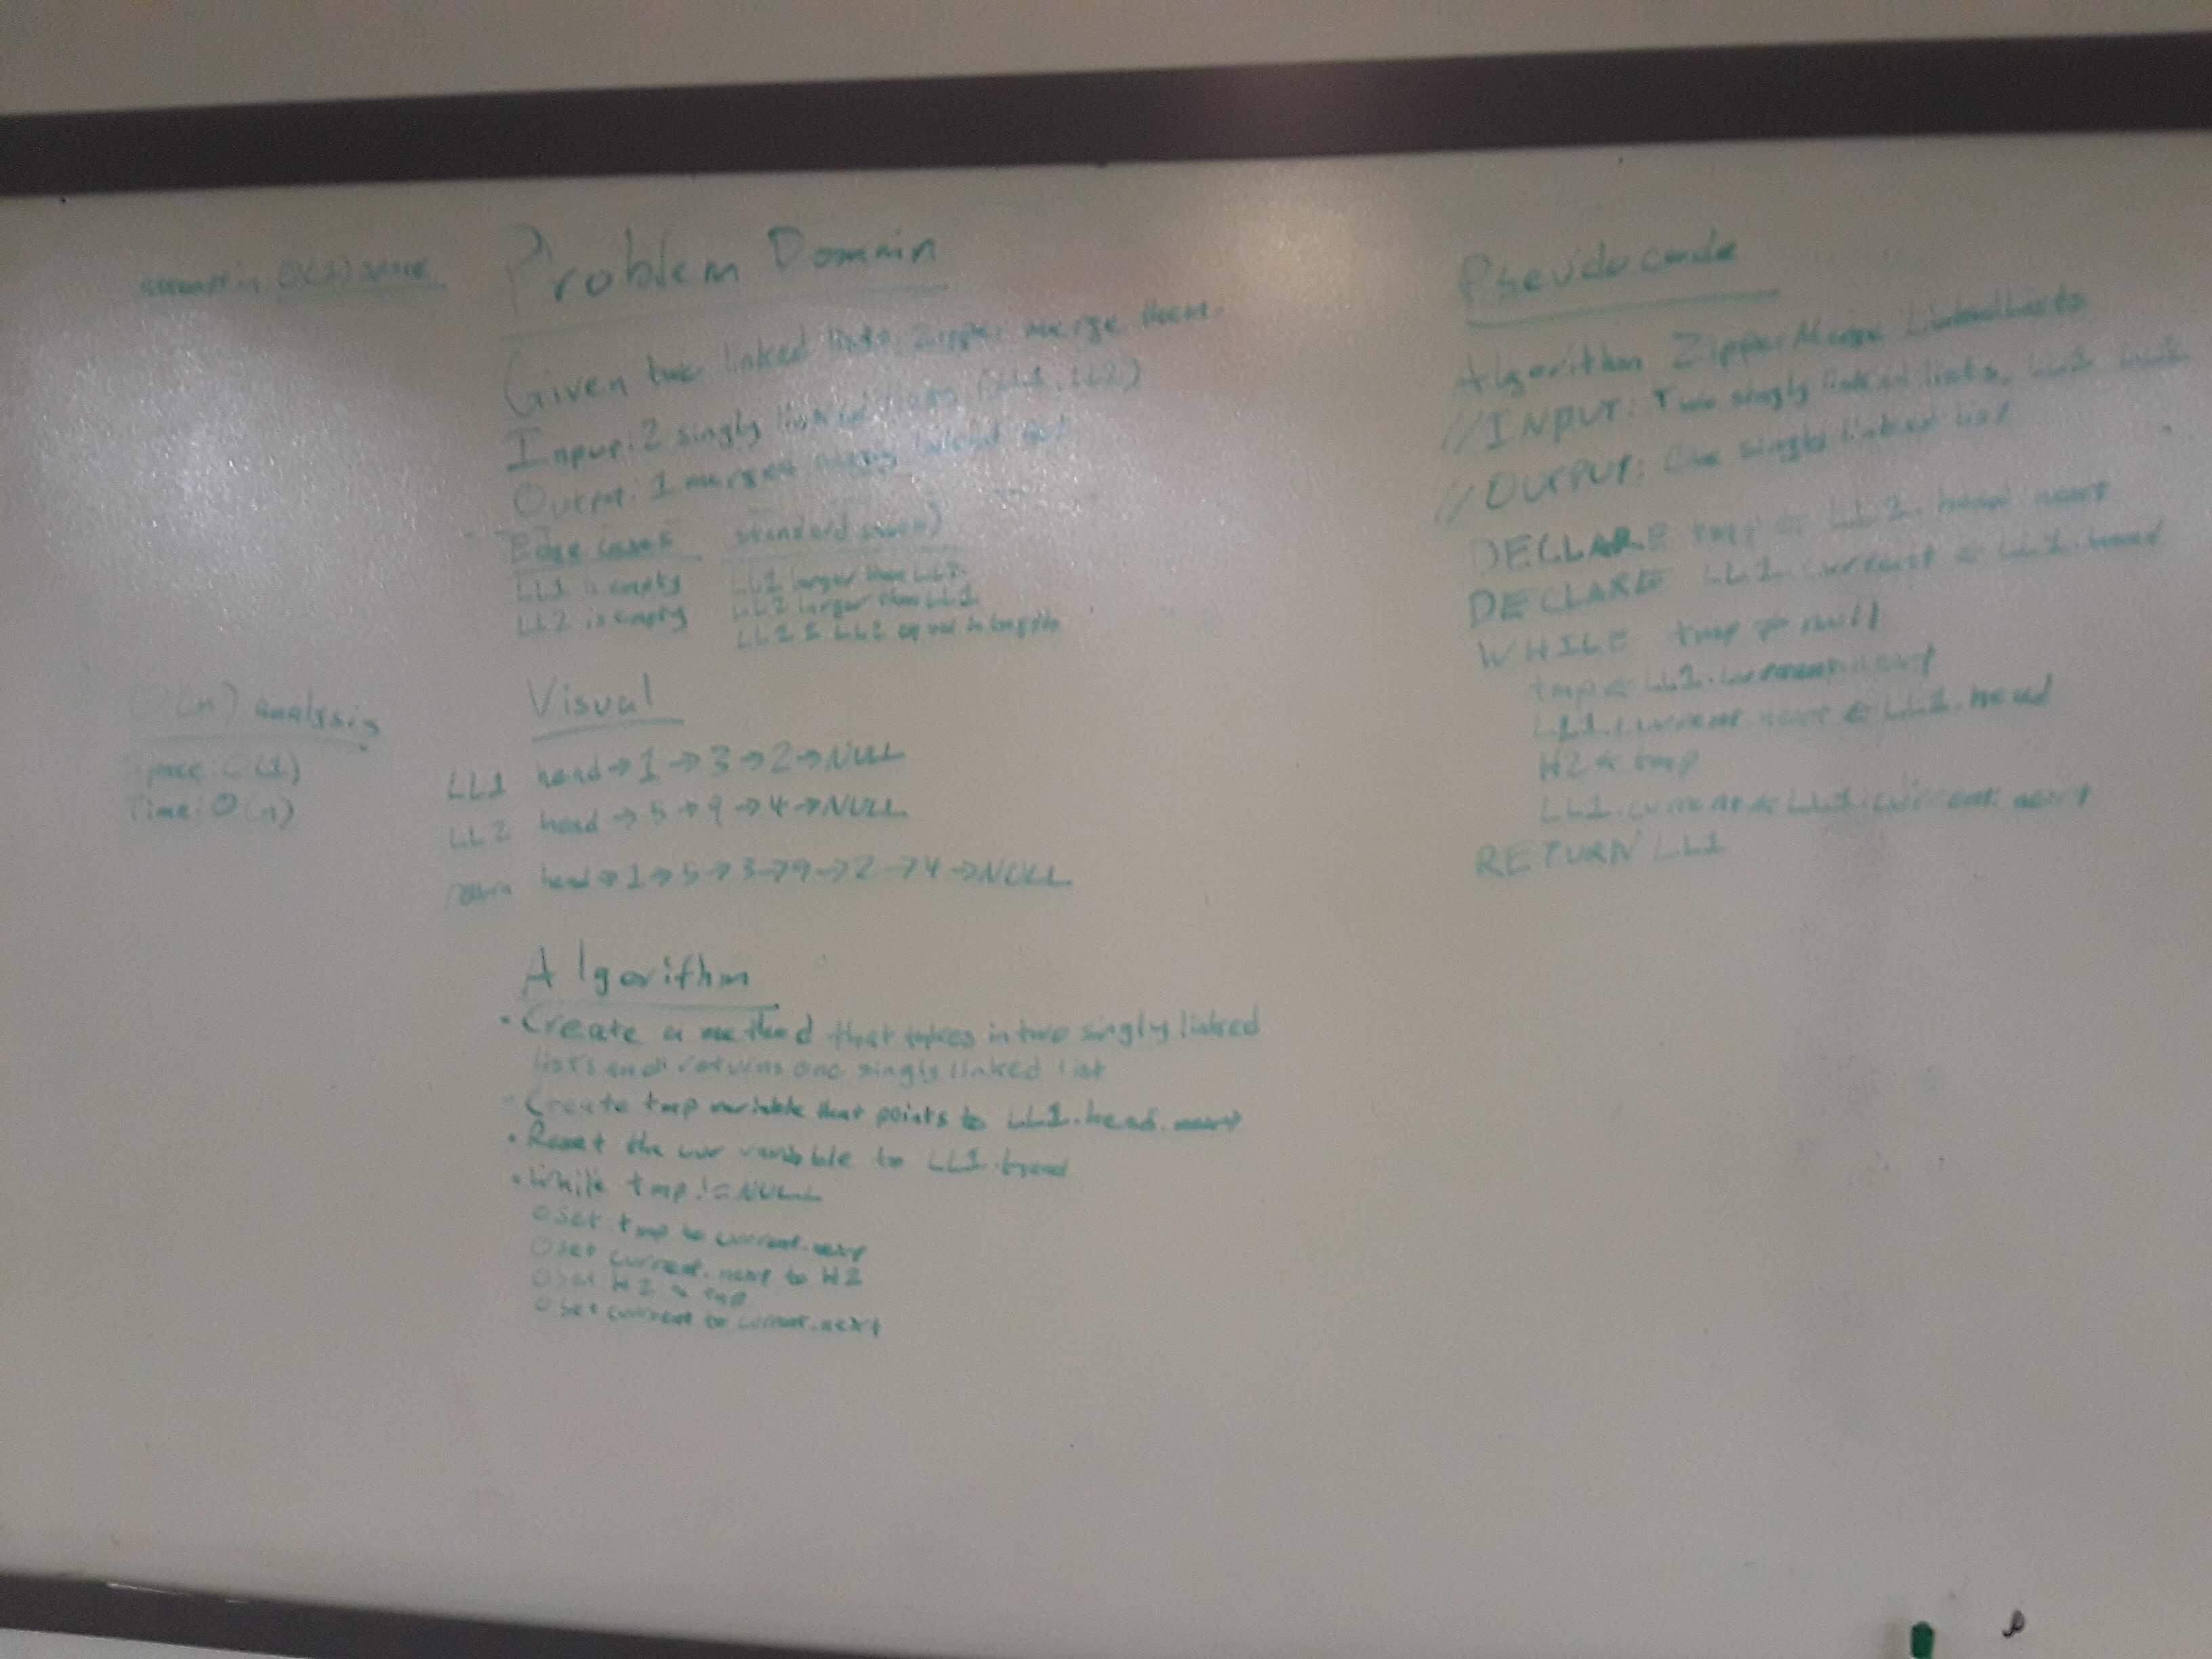 O(1) space
Problem Domain
Given two linked lists zipper merge them.
Input: 2 singly linked lists (LL1, LL2)
Output: 1 merged singly linked list
Edge cases
LL1 is empty
LL2 is empty
standard
LL1 larger than LL2
LL2 larger than LL1
LL1 & LL2 equal in length
O(n) analysis
Space: O(1)
Time: O(n)
Visual
LL1 head → 1 → 3 → 2 → NULL
LL2 head → 5 → 9 → 4 → NULL
return head → 1 → 5 → 3 → 9 → 2 → 4 → NULL
Algorithm
• Create a method that takes in two singly linked
lists and returns one singly linked list
• Create tmp variable that points to LL1.head.next
• Reset the curr variable to LL1.head
• While tmp != NULL
○ Set tmp to current.next
○ set current.next to H2
○ set H2 to tmp
○ Set current to current.next
Pseudocode
Algorithm ZipperMerge LinkedLists
//INPUT: Two singly linked lists, LL1 LL2
//OUTPUT: One singly linked list
DECLARE tmp ← LL1.head.next
DECLARE LL1.current ← LL1.head
WHILE tmp ≠ null
tmp ← LL1.current.next
LL1.current.next ← LL1.head
H2 ← tmp
LL1.current ← LL1.current.next
RETURN LL1